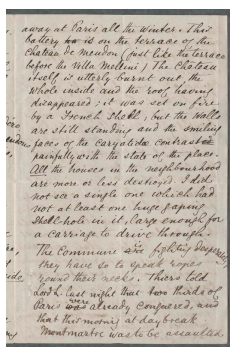 away at Paris all the Winter. This
battery is on the terrace of the
Chateau de Meudon (just like the terrace
before the Villa Mellini) The Chateau
itself is utterly burnt out, the
whole inside and the roof having
disappeared; it was set on fire
by a French shell; but the Walls
are still standing and the smiling
faces of the caryatides contrast
painfully with the state of the place.
All the houses in the neighbourhood
are more or less destroyed. I did
not see a single one which had
not at least one huge gaping
shell-hole in it, large enough for
a carriage to drive through.
The Commune are fighting desperately
they have so to speak ropes
round their necks. Thiers told
Lord L. last night that two thirds of
Paris was already conquered, and
that this morning at daybreak
Montmartre was to be assaulted